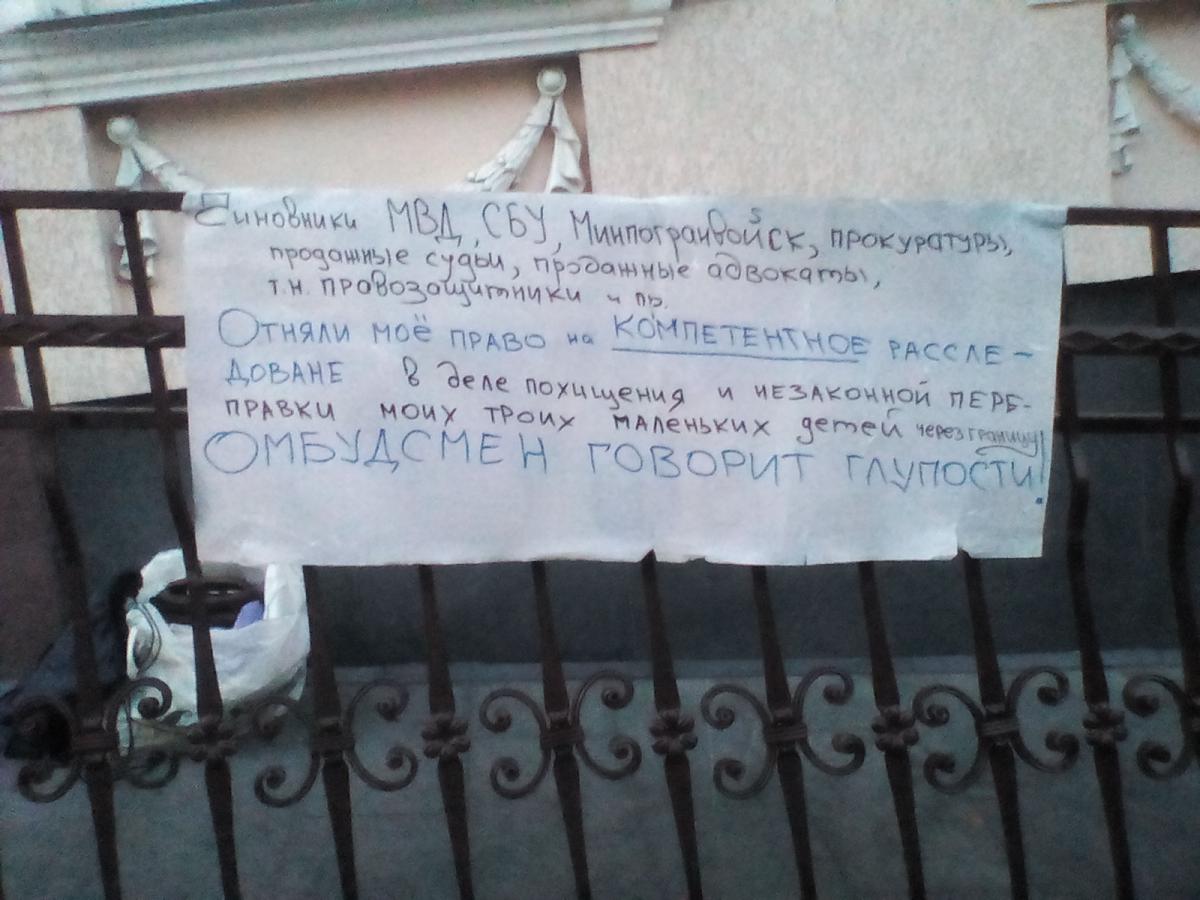 Чиновники МВД, СБУ, Минпогранвойск, прокуратуры,
продажные судьи, продажные адвокаты,
т.н. провозащитники и пр.
Отняли моё право на КОМПЕТЕНТНОЕ рассле-
доване в деле похищения и незаконной пере-
правки моих троих маленьких детей через границу!
ОМБУДСМЕН ГОВОРИТ ГЛУПОСТИ!